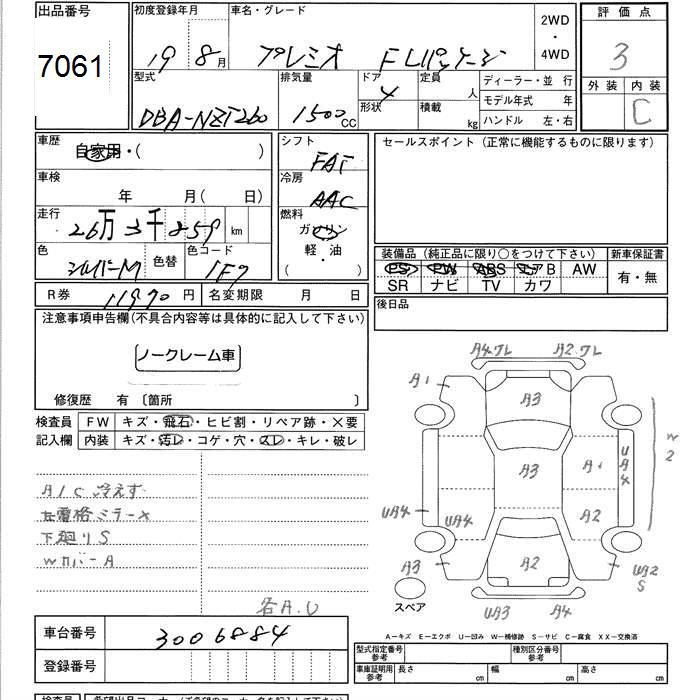 出品番号
7061
初度登録年月
19年 8月
車名・グレード
プレミオ FLパッケージ
2WD
・
4WD
評価点
3
外装 内装
C
型式
DBA-NZT260
排気量
1500 CC
ドア
4
形状
定員
人
積載
kg
ディーラー・並行
モデル年式 年
ハンドル 左・右
車歴
自家用・( )
車検
年 月( 日)
走行
26万3千859 km
色
シルバーM
色替
色コード
1F7
シフト
FAT
冷房
AAC
燃料
ガソリン
軽・油
( ・ )
セールスポイント(正常に機能するものに限ります)
装備品(純正品に限り○をつけて下さい)
PS PW ABS エアB AW
SR ナビ TV カワ
新車保証書
有・無
R券 11970円
名変期限 月 日
後日品
注意事項申告欄(不具合内容等は具体的に記入して下さい)
ノークレーム車
修復歴 有〔箇所 〕
検査員
記入欄
FW キズ・飛石・ヒビ割・リペア跡・×要
内装 キズ・汚レ・コゲ・穴・スレ・キレ・破レ
A/C 冷えず
左電格ミラー×
下廻りS
Wカバー A
各A.U
A4ワレ
A2ワレ
A1
A3
A3
A1
UA4
W2
UA4
UA4
A2
A3
A2
UA2
S
UA3
A4
スペア
A-キズ E-エクボ U-凹み W-補修跡 S-サビ C-腐食 XX-交換済
車台番号
3006884
登録番号
型式指定番号
参考
種別区分番号
参考
車庫証明用
参考
長さ cm
幅 cm
高さ cm